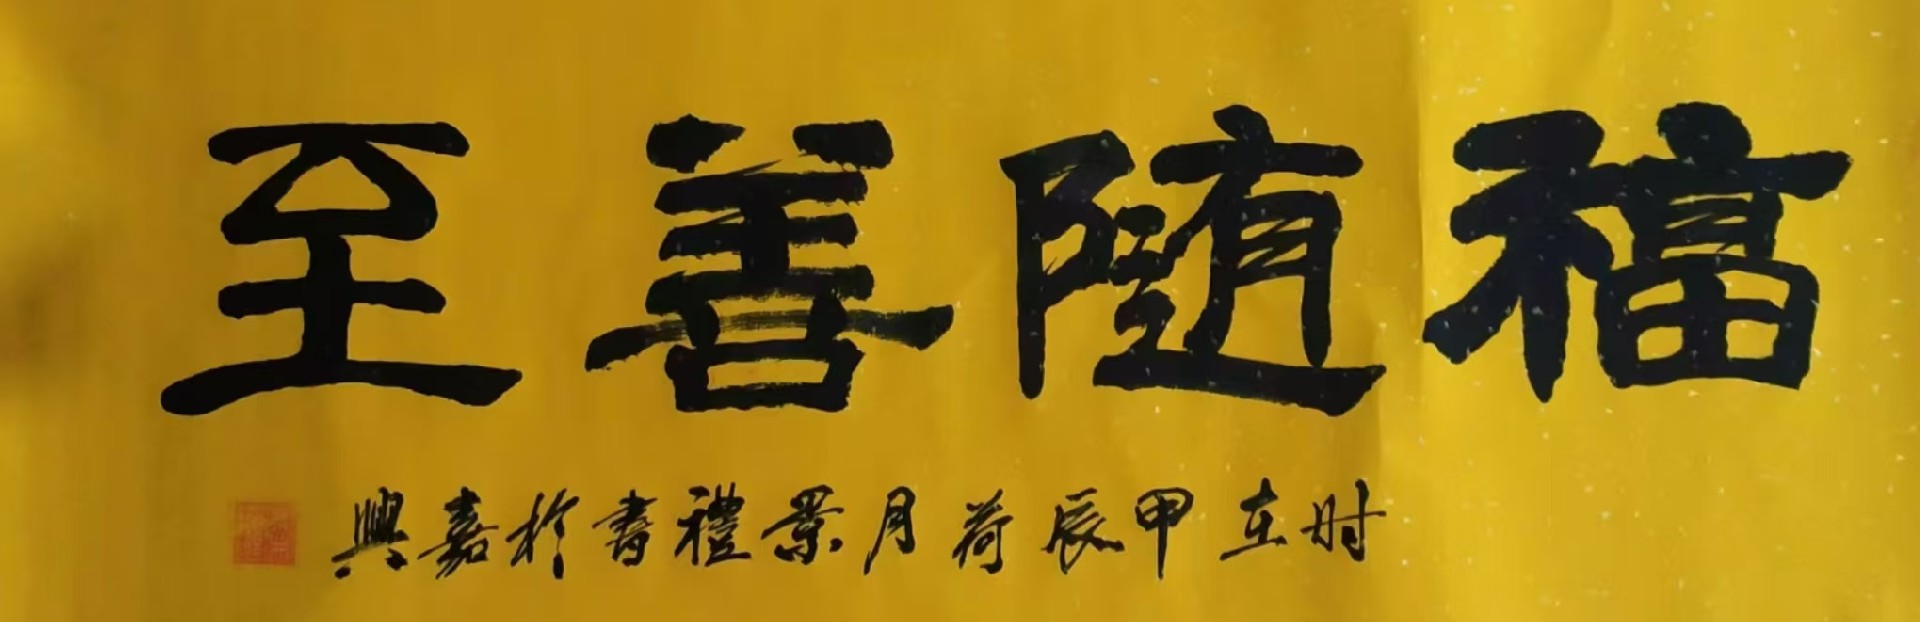 福随善至
时在甲辰荷月景禮書於嘉興